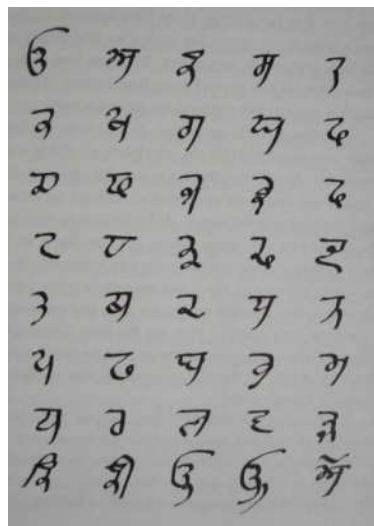 ੳ ਅ ੲ ਸ ਹ
ਕ ਖ ਗ ਘ ਙ
ਚ ਛ ਜ ਝ ਞ
ਟ ਠ ਡ ਢ ਣ
ਤ ਥ ਦ ਧ ਨ
ਪ ਫ ਬ ਭ ਮ
ਯ ਰ ਲ ਵ ੜ
ਇ ਈ ਉ ਊ ਐ